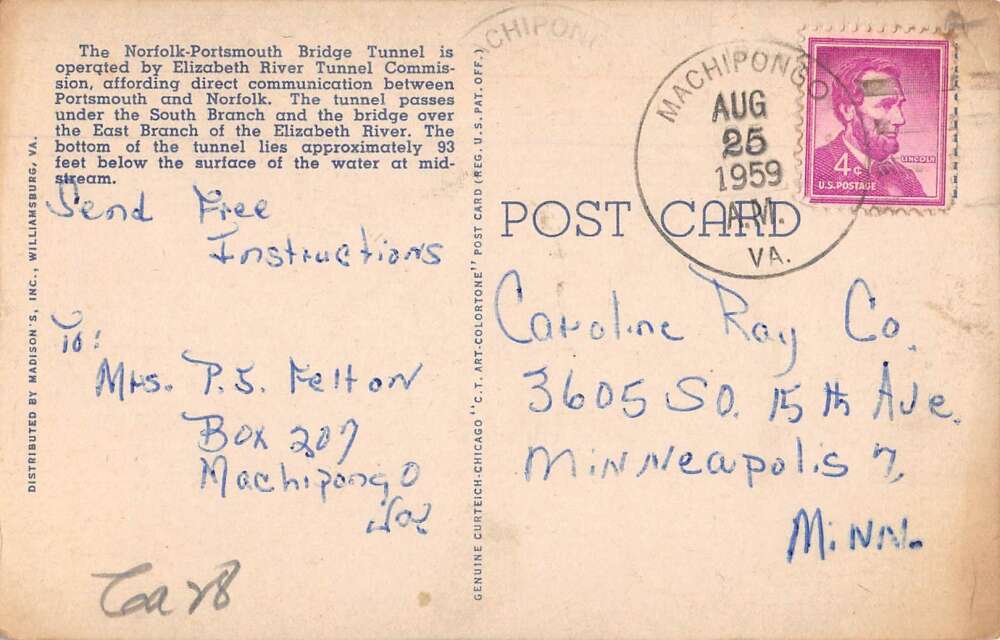 The Norfolk-Portsmouth Bridge Tunnel is
operated by Elizabeth River Tunnel Commis-
sion, affording direct communication between
Portsmouth and Norfolk. The tunnel passes
under the South Branch and the bridge over
the East Branch of the Elizabeth River. The
bottom of the tunnel lies approximately 93
feet below the surface of the water at mid-
stream.
Send Free
Instructions
To:
Mrs. P. S. Felton
Box 207
Machipongo
Va
DISTRIBUTED BY MADISON'S, INC., WILLIAMSBURG, VA.
GENUINE CURTEICH-CHICAGO "C. T. ART-COLORTONE" POST CARD (REG. U. S. PAT. OFF.)
CHIPON
MACHIPONGO
AUG
25
1959
A.M.
VA.
LINCOLN
4¢
U.S. POSTAGE
POST CARD
Caroline Ray Co.
3605 So. 15 th Ave.
Minneapolis 7,
Minn.